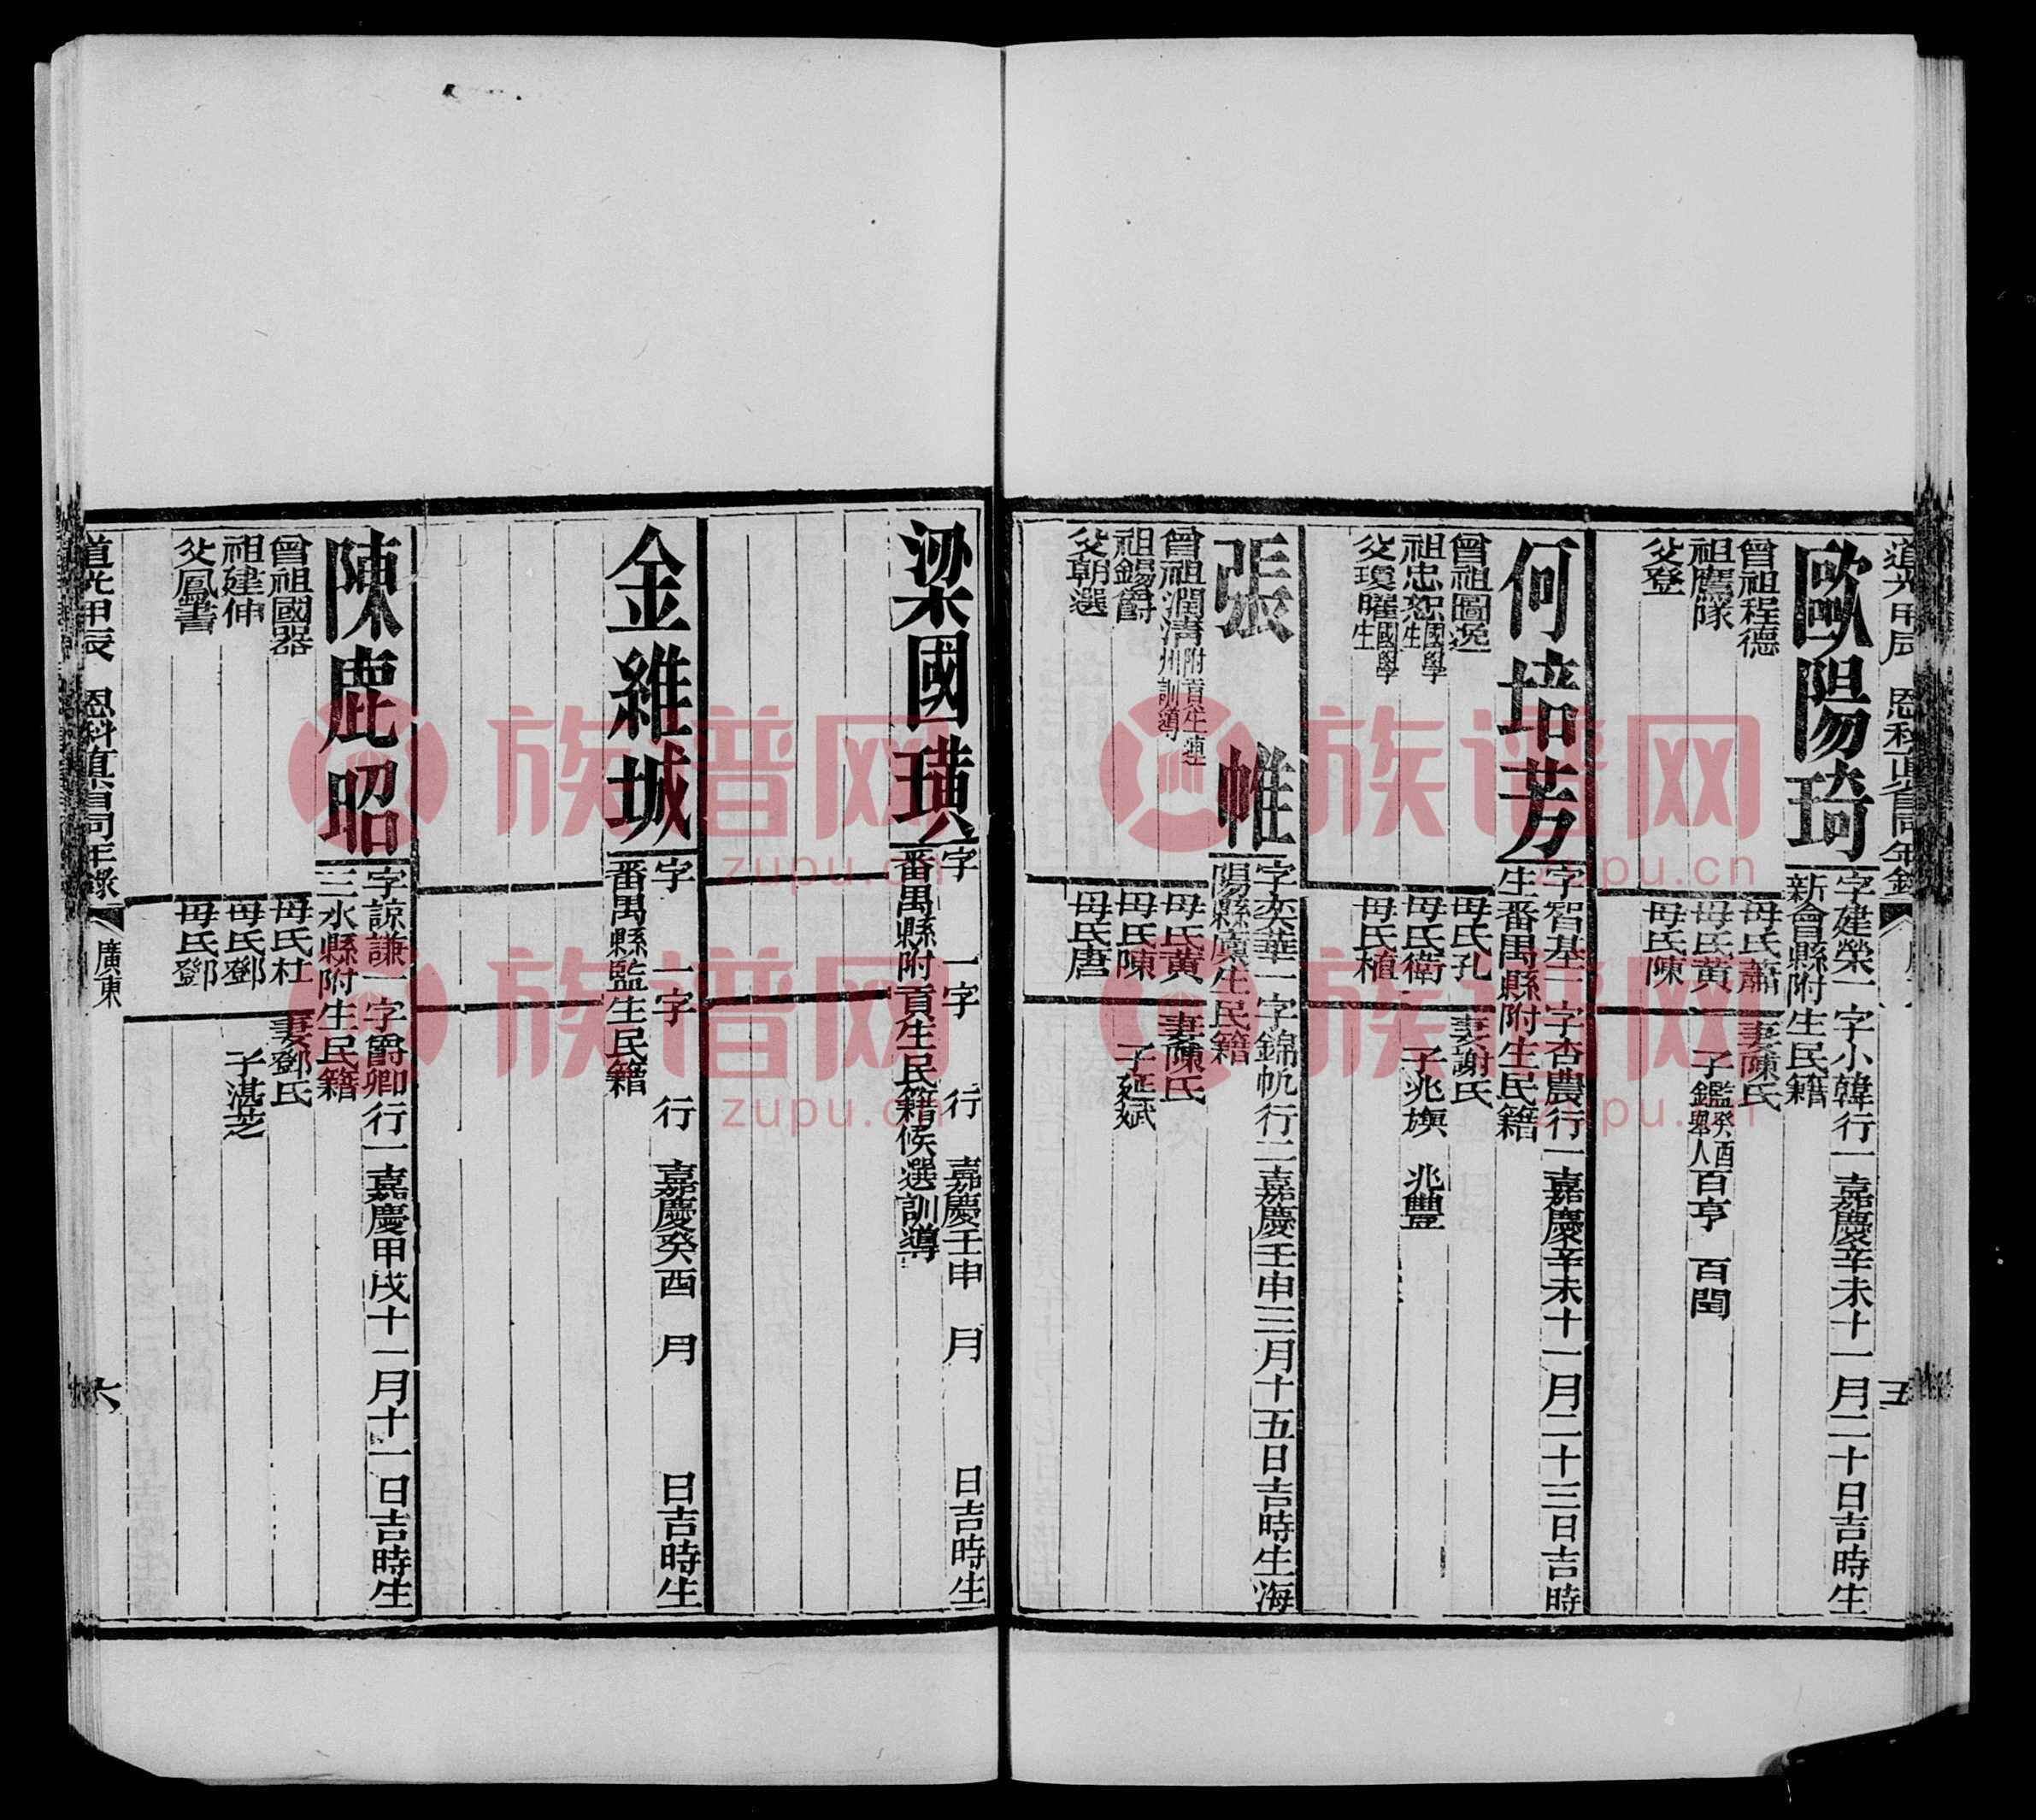 道光甲辰 恩科直省同年錄
五
歐陽琦
字建榮一字小韓行一嘉慶辛未十一月二十日吉時生
新會縣附生民籍
曾祖程德
祖鷹隊
父登
母氏蕭
母氏黃
母氏陳
妻陳氏
子鑑癸酉舉人百亨 百閏
何培芳
字智基一字杏農行一嘉慶辛未十一月二十三日吉時
生番禺縣附生民籍
曾祖圖逸
祖忠恕國學生
父瓊曜國學生
母氏孔
母氏衛
母氏植
妻謝氏
子兆旟 兆豐
張帷
字奕華一字錦帆行二嘉慶壬申三月十五日吉時生海
陽縣廩生民籍
曾祖潤清附貢生連州訓導
祖錫爵
父朝選
母氏黃
母氏陳
母氏唐
妻陳氏
子延斌
梁國璜
字 一字 行 嘉慶壬申 月 日吉時生
番禺縣附貢生民籍候選訓導
金維城
字 一字 行 嘉慶癸酉 月 日吉時生
番禺縣監生民籍
陳鹿昭
字諒謙一字爵卿行一嘉慶甲戌十一月十一日吉時生
三水縣附生民籍
曾祖國器
祖建伸
父鳳書
母氏杜
母氏鄧
母氏鄧
妻鄧氏
子湛芝
道光甲辰 恩科直省同年錄
廣東
六
族谱网
zupu.cn
族谱网
zupu.cn
族谱网
zupu.cn
族谱网
zupu.cn